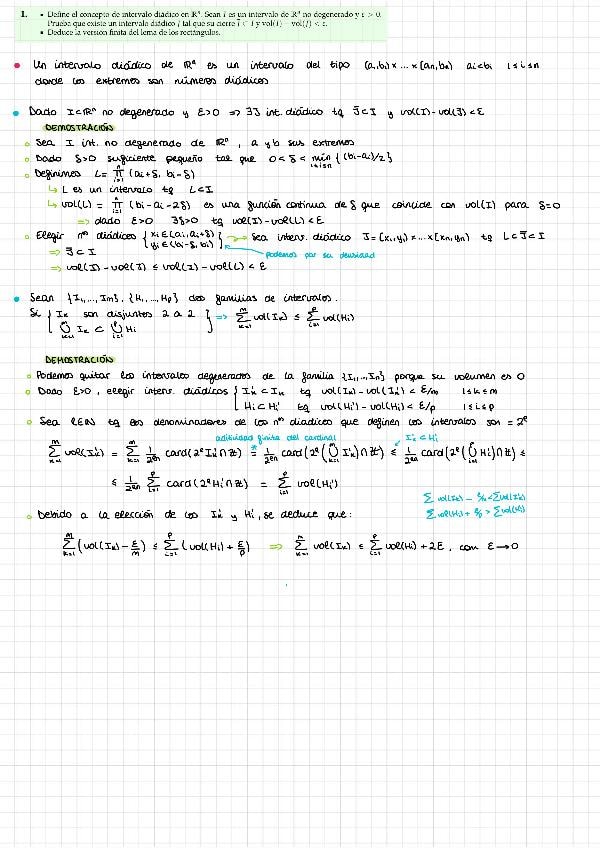 1. • Define el concepto de intervalo diádico en ℝⁿ. Sean I es un intervalo de ℝⁿ no degenerado y ε > 0.
Prueba que existe un intervalo diádico J tal que su cierre J̅ ⊂ I y vol(I) − vol(J) < ε.
• Deduce la versión finita del lema de los rectángulos.
• Un intervalo diádico de ℝⁿ es un intervalo del tipo (a₁,b₁]×...×(aₙ,bₙ] aᵢ<bᵢ 1≤i≤n
donde los extremos son números diádicos
• Dado I⊂ℝⁿ no degenerado y ε>0 ⇒ ∃J int. diádico tq J̅⊂I y vol(I)-vol(J)<ε
DEMOSTRACIÓN
○ Sea I int. no degenerado de ℝⁿ, a y b sus extremos
○ Dado δ>0 suficiente pequeño tal que 0<δ< min_{1≤i≤n} {(bᵢ-aᵢ)/2}
○ Definimos L= ∏_{i=1}^{n} (aᵢ+δ, bᵢ-δ)
↳ L es un intervalo tq L⊂I
↳ vol(L) = ∏_{i=1}^{n} (bᵢ-aᵢ-2δ) es una función continua de δ que coincide con vol(I) para δ=0
⇒ dado ε>0 ∃δ>0 tq vol(I)-vol(L)<ε
○ Elegir nºˢ diádicos { xᵢ∈(aᵢ,aᵢ+δ) yᵢ∈(bᵢ-δ,bᵢ) } → Sea interv. diádico J=(x₁,y₁]×...×(xₙ,yₙ] tq L⊂J̅⊂I
podemos por su densidad
⇒ J̅⊂I
⇒ vol(I)-vol(J) ≤ vol(I)-vol(L) < ε
• Sean {I₁,...,Iₘ}, {H₁,...,Hₚ} dos familias de intervalos.
Si { Iₖ son disjuntos 2 a 2 ⋃_{k=1}^{m} Iₖ ⊂ ⋃_{i=1}^{p} Hᵢ } ⇒ ∑_{k=1}^{m} vol(Iₖ) ≤ ∑_{i=1}^{p} vol(Hᵢ)
DEMOSTRACIÓN
○ Podemos quitar los intervalos degenerados de la familia {I₁,...,Iₘ} porque su volumen es 0
○ Dado ε>0, elegir interv. diádicos { I'ₖ⊂Iₖ tq vol(Iₖ)-vol(I'ₖ) < ε/m 1≤k≤m
Hᵢ⊂H'ᵢ tq vol(H'ᵢ)-vol(Hᵢ) < ε/p 1≤i≤p
○ Sea ℓ∈ℕ tq los denominadores de los nºˢ diádicos que definen los intervalos son = 2^ℓ
aditividad finita del cardinal
I'ₖ⊂H'ᵢ
∑_{k=1}^{m} vol(I'ₖ) = ∑_{k=1}^{m} 1/2^{ℓn} card(2^ℓ I'ₖ∩ℤ) =* 1/2^{ℓn} card(2^ℓ(⋃_{k=1}^{m} I'ₖ)∩ℤ) ≤ 1/2^{ℓn} card(2^ℓ(⋃_{i=1}^{p} H'ᵢ)∩ℤ) ≤
≤ 1/2^{ℓn} ∑_{i=1}^{p} card(2^ℓ H'ᵢ∩ℤ) = ∑_{i=1}^{p} vol(H'ᵢ)
∑ vol(Iₖ) - ε/m < ∑ vol(I'ₖ)
∑ vol(Hᵢ) + ε/p > ∑ vol(H'ᵢ)
○ Debido a la elección de los I'ₖ y H'ᵢ, se deduce que:
∑_{k=1}^{m} (vol(Iₖ) - ε/m) ≤ ∑_{i=1}^{p} (vol(Hᵢ) + ε/p) ⇒ ∑_{k=1}^{m} vol(Iₖ) ≤ ∑_{i=1}^{p} vol(Hᵢ) + 2ε, con ε→0